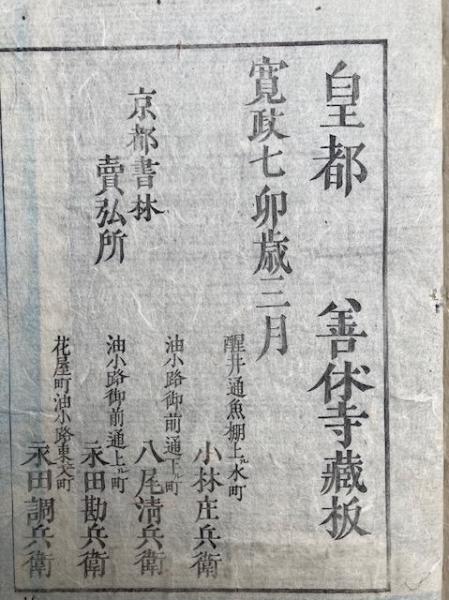 皇都 善休寺藏板
寛政七卯歳三月
京都書林
賣弘所
醒井通魚棚上ル水町
小林庄兵衛
油小路御前通下ル町
八尾清兵衛
油小路御前通上ル町
永田勘兵衛
花屋町油小路東入町
永田調兵衛